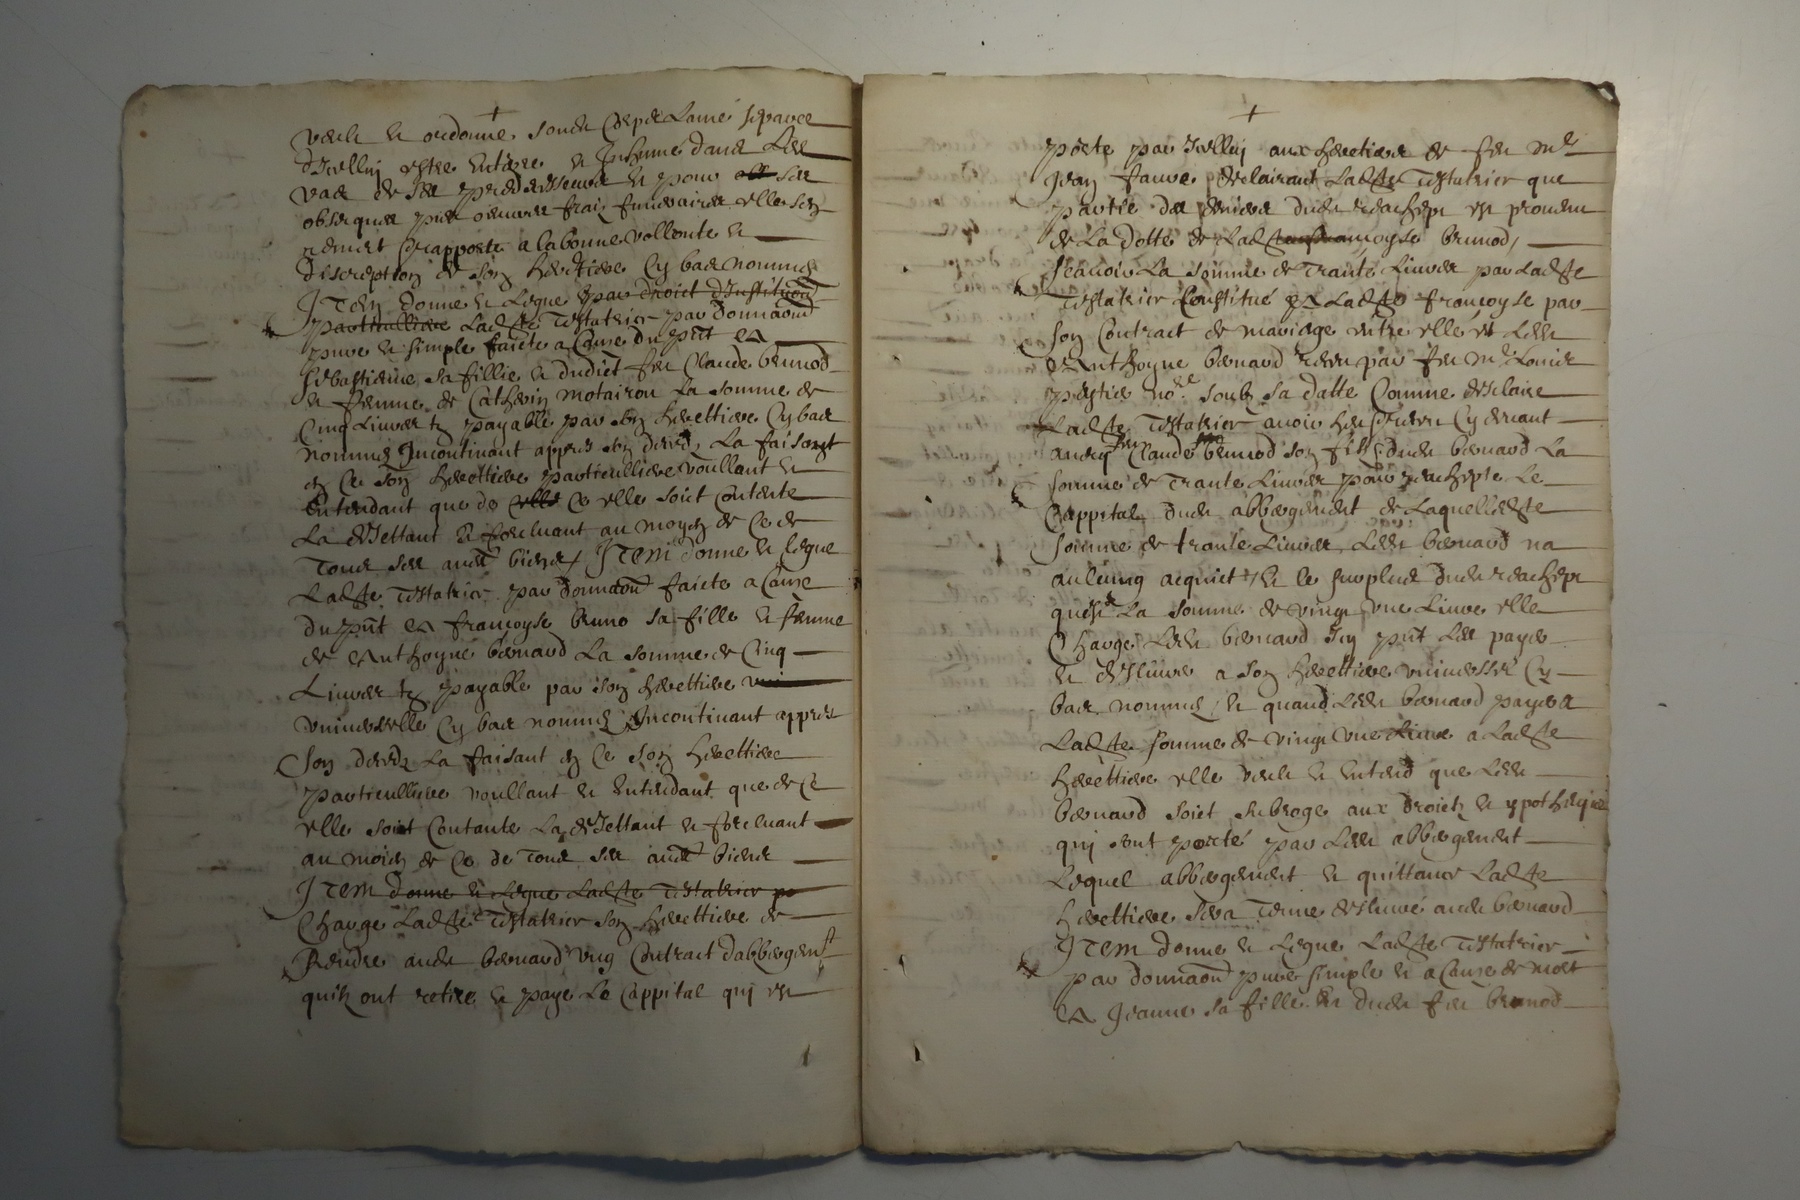 veult et ordonne son dict corps Lame separee
dicelluy estre enterre et Inhumé dans Les
vas de Ses predecesseurs et pour ses
obseques pies oeuvres frais funeraires elle sen
remet et rapporte a la bonne vollonte et
discreption de son herettiere cy bas nommee
Item donne et Legue par droict dinstitution
particulliere Ladte Testatrice par donnaon
pure et simple faicte a Cause du pnt a
Sebastienne sa fillie et dudict feu Claude brunod
et femme de Cathelin motairon La somme de
Cinq Livres tz payable par son herettiere Cy bas
nommee Incontinant appres son deces, La faisant
en Ce son herettiere particulliere voullant et
Entendant que de Ce elle soict Contente
La dejettant et forcluant au moyen de Ce de
Tous ses aues biens / Item donne et legue
Ladte Testatrice par donnaon faicte a Cause
du pnt a françoyse bruno sa fille et femme
de Anthoyne bernard La somme de Cinq
Livres tz payable par son herettiere
universelle Cy bas nommee Incontinant appres
Son deces La faisant en Ce son herettiere
particulliere voullant et Entendant que de Ce
elle soict Contante La dejettant et forcluant
au moien de Ce de Tous ses aues biens
Item donne et Legue Ladte Testatrice pa
Charge Ladte Testatrice son herettiere de
Rendre audt bernard ung Contract dabbergemt
quilz ont retire et paye Le Cappital qui est
porté par Icelluy aux herettiers de feu mre
Jean faure declairant Ladte Testatrice que
partie des deniers dudt reachept est provenu
de La dotte de Ladte françoyse brunod /
scavoir La somme de Trante Livres par Ladte
Testatrice Constitué a Ladte françoyse par
son Contract de mariage entre elle et Ledt
Anthoyne bernard receu par feu mre Louis
nore soubz sa datte Comme desclaire
Ladte Testatrice avoir heu Cy devant
Claude brunod son filz dudt bernard La
somme de Trante Livres pour reachepte Le
Cappital dudt abbergement de Laquelle dte
somme de trante Livres Ledt bernard na
aulcung acquict et le surplus dudt reachept
quest La somme de vingt une Livre elle
Charge Ledt bernard Icy pnt Les payer
et deslivrer a son herettiere universse Cy
bas nommee et quand Ledt bernard payera
Ladte somme de vingt une Livre a Ladte
herettiere elle veult et Entend que Ledt
bernard soict subroge aux droictz et ypotheque
qui sont porté par Ledt abbergement
Lequel abbergement et quittance Ladte
herettiere sera Tenue deslivré audt bernard
Item donne et Legue Ladte Testatrice
par donnaon pure simple et a Cause de mort
a Jeanne sa fille et dudt feu brunod